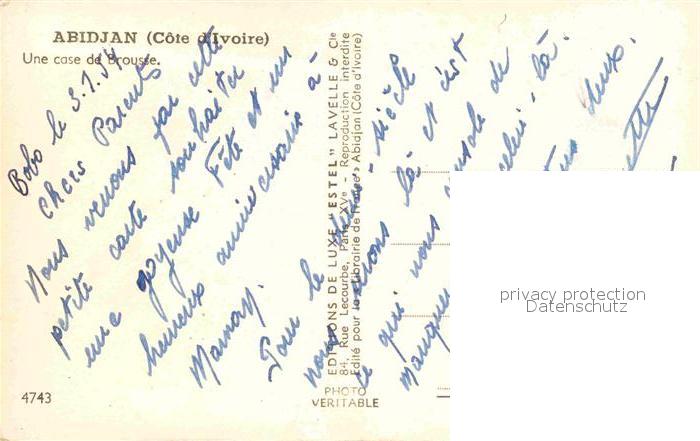 ABIDJAN (Côte d'Ivoire)
Une case de Brousse.
Bobo le 3.1.54
Chers Parents
Nous venons par cette
petite carte souhaiter
une joyeuse Fête et un
heureux anniversaire à
Maman.
Pour le siècle
nous serons là et c'est
ce qui nous console de
manquer celui-là.
tous deux.
EDITIONS DE LUXE "ESTEL" LAVELLE & Cie
84, Rue Lecourbe, Paris XVe - Reproduction interdite
Edité pour la « Librairie de France » Abidjan (Côte d'Ivoire)
PHOTO
VERITABLE
4743
privacy protection
Datenschutz